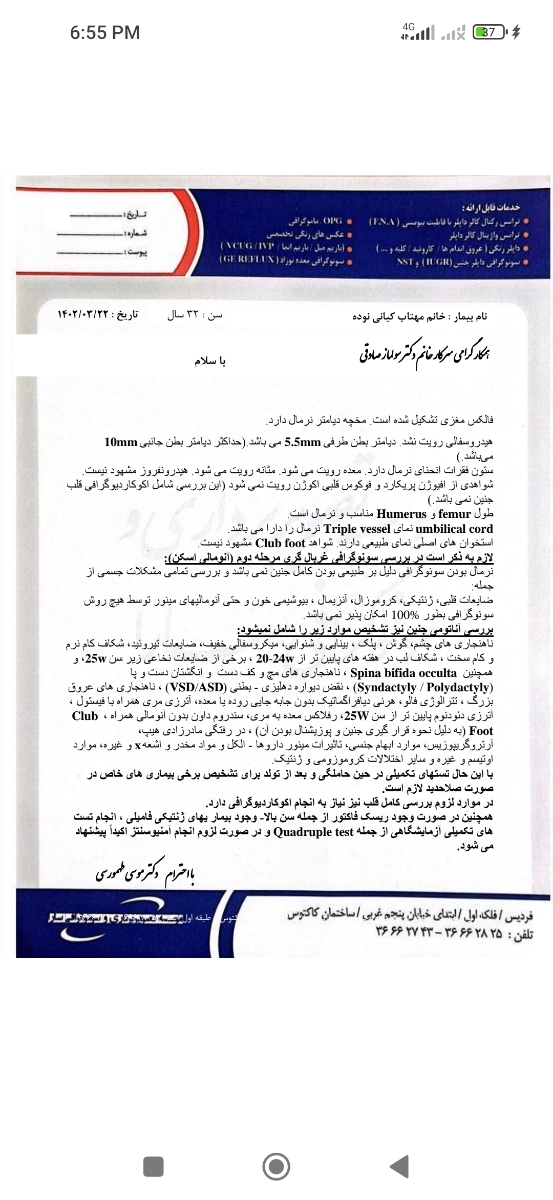 6:55 PM
4G
37
تاریخ :
شماره :
پیوست :
خدمات قابل ارائه :
ترانس رکتال کالر داپلر با قابلیت بیوپسی (F.N.A)
ترانس واژینال کالر داپلر
داپلر رنگی ( عروق اندام ها / کاروتید / کلیه و ... )
سونوگرافی داپلر جنین (IUGR) و NST
OPG ، ماموگرافی
عکس های رنگی تخصصی
( باریم میل / باریم انما / VCUG / IVP )
سونوگرافی معده نوزاد (GE REFLUX)
نام بیمار : خانم مهتاب کیانی نوده
سن : ۳۲ سال
تاریخ : ۱۴۰۲/۰۳/۲۲
همکار گرامی سرکار خانم دکتر سولماز صادقی
با سلام
فالکس مغزی تشکیل شده است. مخچه دیامتر نرمال دارد.
هیدروسفالی رویت نشد. دیامتر بطن طرفی 5.5mm می باشد.(حداکثر دیامتر بطن جانبی 10mm
میباشد.)
ستون فقرات انحنای نرمال دارد. معده رویت می شود. مثانه رویت می شود. هیدرونفروز مشهود نیست.
شواهدی از افیوژن پریکارد و فوکوس قلبی اکوژن رویت نمی شود (این بررسی شامل اکوکاردیوگرافی قلب
جنین نمی باشد.)
طول femur و Humerus مناسب و نرمال است.
umbilical cord نمای Triple vessel نرمال را دارا می باشد.
استخوان های اصلی نمای طبیعی دارند. شواهد Club foot مشهود نیست.
لازم به ذکر است در بررسی سونوگرافی غربال گری مرحله دوم (آنومالی اسکن):
نرمال بودن سونوگرافی دلیل بر طبیعی بودن کامل جنین نمی باشد و بررسی تمامی مشکلات جسمی از
جمله:
ضایعات قلبی، ژنتیکی، کروموزال، آنزیمال ، بیوشیمی خون و حتی آنومالیهای مینور توسط هیچ روش
سونوگرافی بطور %100 امکان پذیر نمی باشد.
بررسی آناتومی جنین نیز تشخیص موارد زیر را شامل نمیشود:
ناهنجاری های چشم، گوش ، پلک ، بینایی و شنوایی، میکروسفالی خفیف، ضایعات تیروئید، شکاف کام نرم
و کام سخت ، شکاف لب در هفته های پایین تر از 20-24w ، برخی از ضایعات نخاعی زیر سن 25w، و
همچنین Spina bifida occulta ، ناهنجاری های مچ و کف دست و انگشتان دست و پا
(Syndactyly / Polydactyly) ، نقض دیواره دهلیزی - بطنی (VSD/ASD) ، ناهنجاری های عروق
بزرگ ، تترالوژی فالو، هرنی دیافراگماتیک بدون جابه جایی روده یا معده، آترزی مری همراه با فیستول ،
آترزی دئودنوم پایین تر از سن 25W، رفلاکس معده به مری، سندروم داون بدون آنومالی همراه ، Club
Foot (به دلیل نحوه قرار گیری جنین و پوزیشنال بودن آن) ، در رفتگی مادرزادی هیپ،
آرتروگریپوزیس، موارد ابهام جنسی، تاثیرات مینور داروها - الکل و مواد مخدر و اشعه x و غیره، موارد
اوتیسم و غیره و سایر اختلالات کروموزومی و ژنتیک.
با این حال تستهای تکمیلی در حین حاملگی و بعد از تولد برای تشخیص برخی بیماری های خاص در
صورت صلاحدید لازم است.
در موارد لزوم بررسی کامل قلب نیز نیاز به انجام اکوکاردیوگرافی دارد.
همچنین در صورت وجود ریسک فاکتور از جمله سن بالا- وجود بیمار یهای ژنتیکی فامیلی ، انجام تست
های تکمیلی آزمایشگاهی از جمله Quadruple test و در صورت لزوم انجام آمنیوسنتز اکیداً پیشنهاد
می شود.
با احترام دکتر موسی طهمورسی
فردیس / فلکه اول / ابتدای خیابان پنجم غربی / ساختمان کاکتوس
طبقه اول
تلفن : ۲۵ ۲۸ ۶۶ ۳۶ – ۴۳ ۲۷ ۶۶ ۳۶